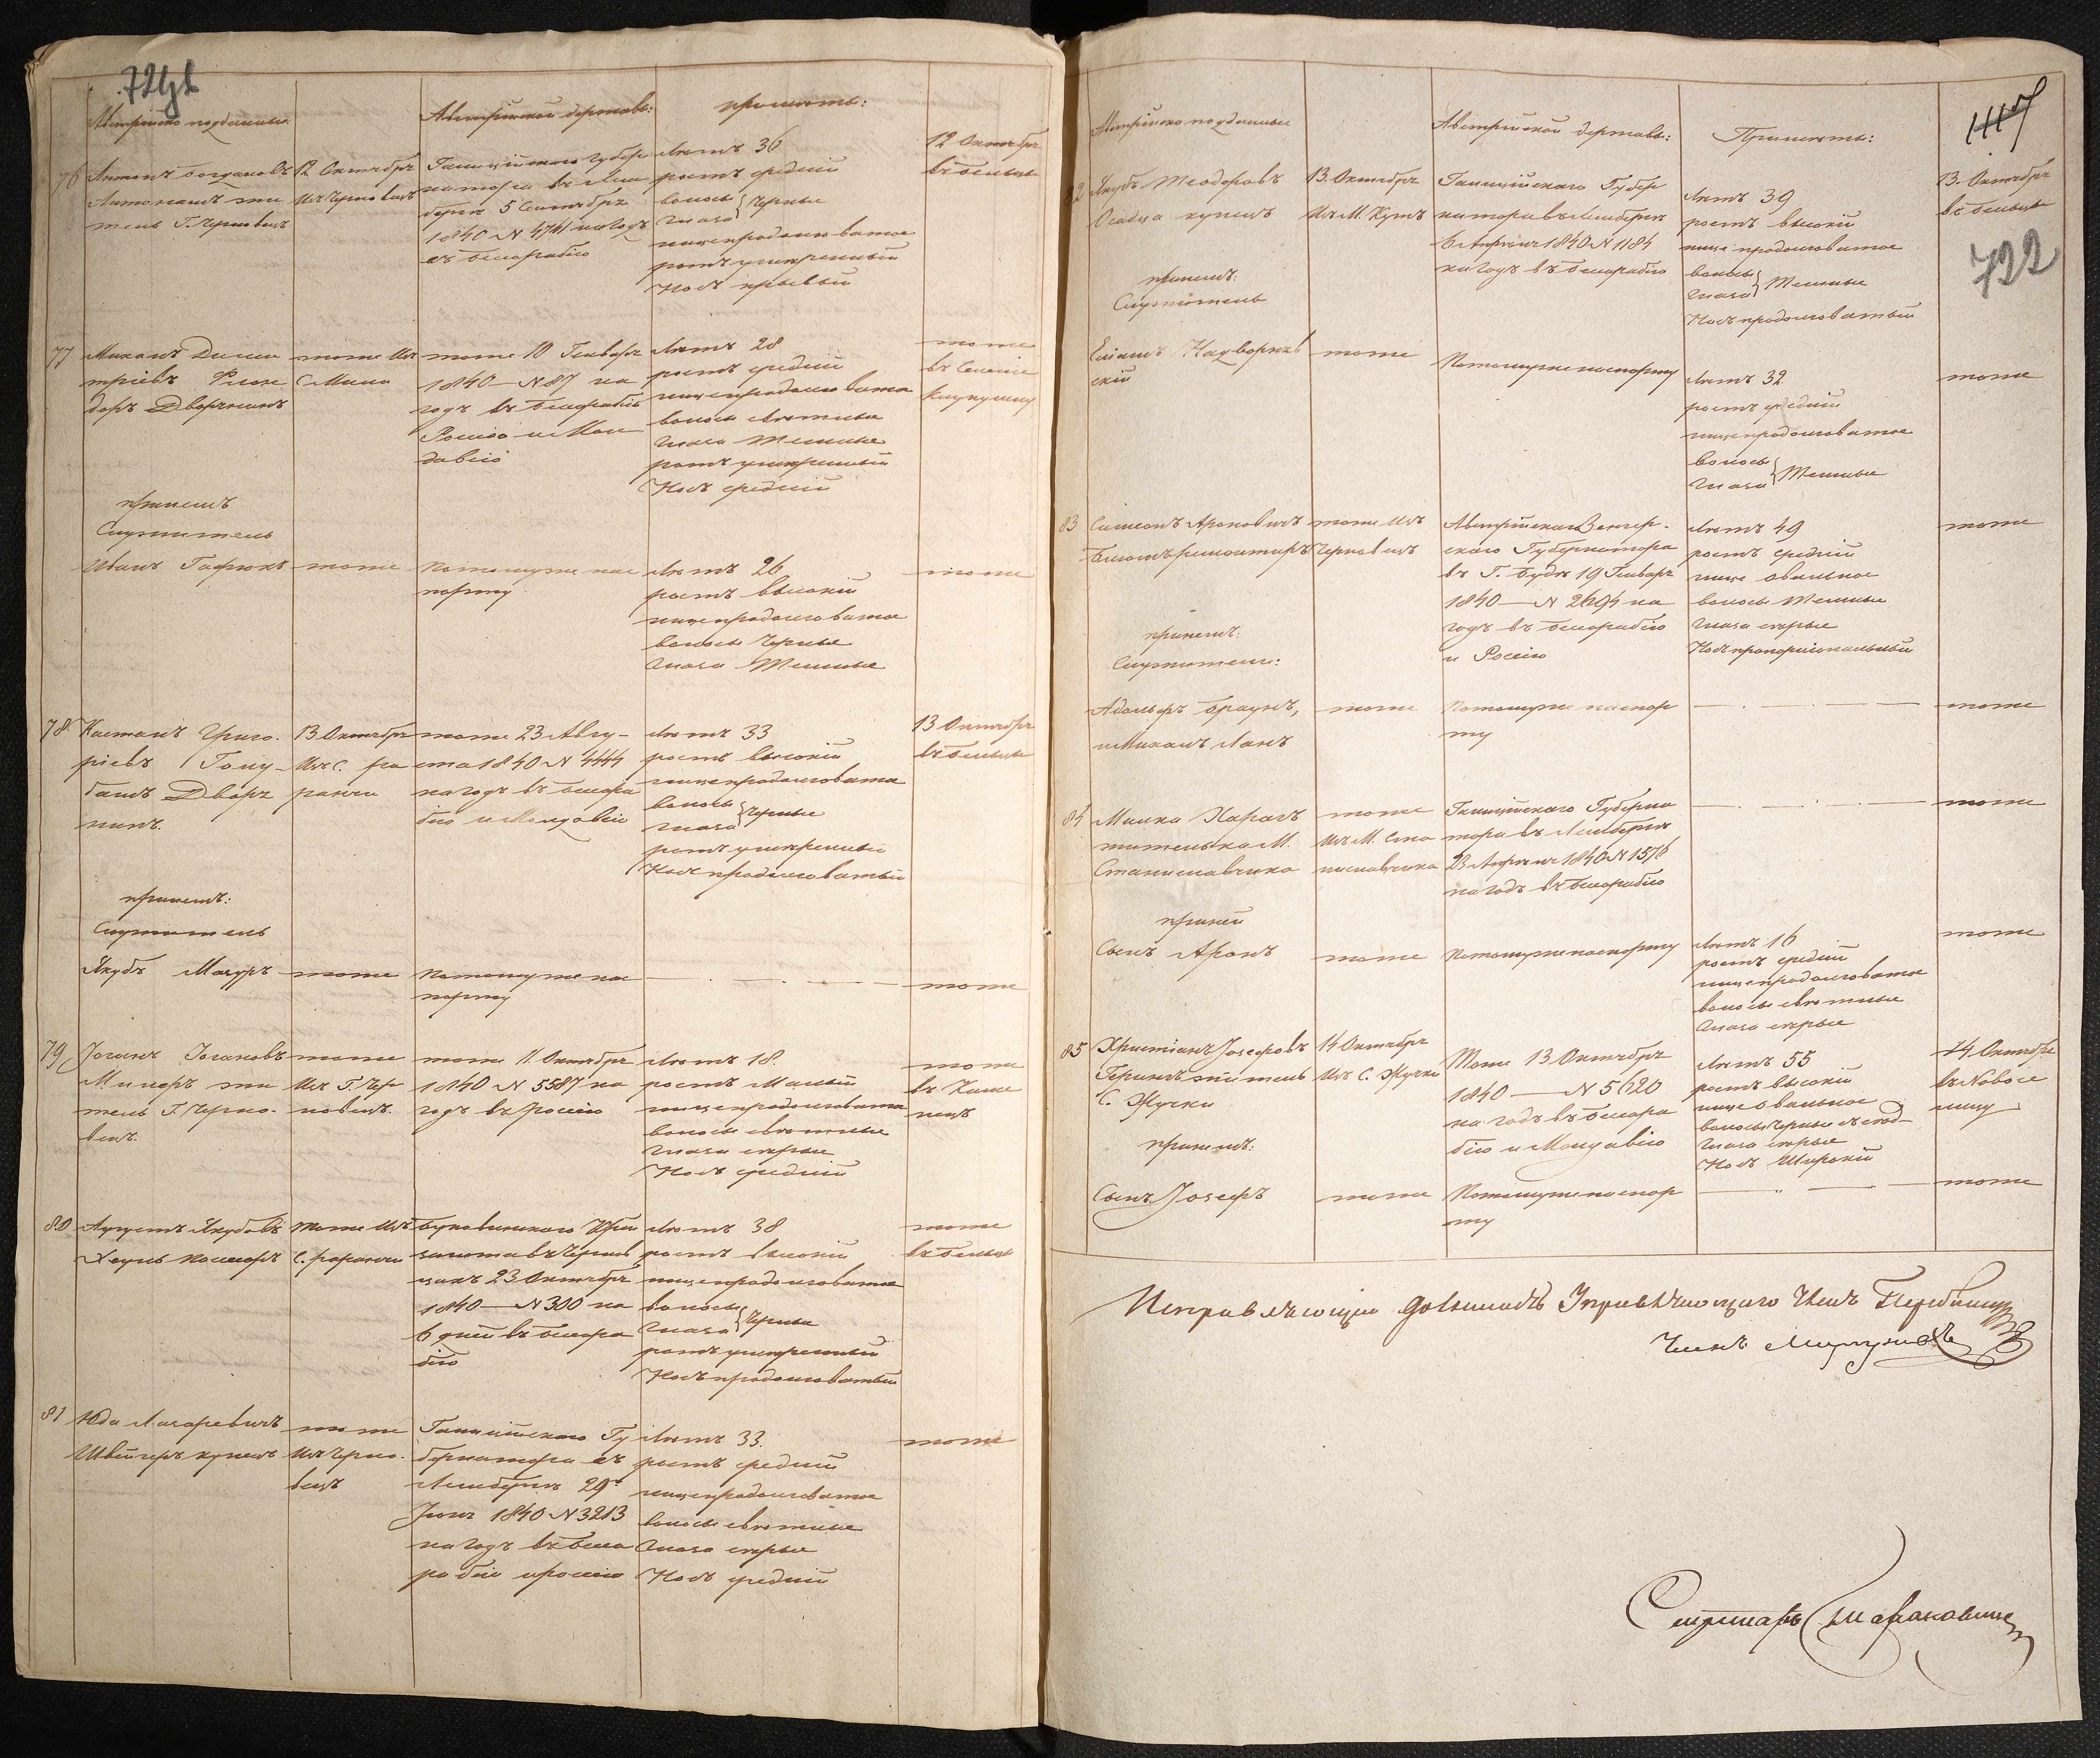 Австрійско подданные
Австрійской державы:
примѣты:
76 Антонъ Богдановъ
Антонашъ жи
тель Г. Черновецъ
12 Октября
Изъ Черновецъ
Галиційскаго Губер
натора въ Лем
бергѣ 5 Сентября
1840 N 4741 на годъ
въ Бессарабію
Лѣтъ 36
ростъ средній
волосы
глаза } Черные
лице продолговатое
ротъ умѣренный
Носъ кривый
12 Октября
въ Бельцы
77 Михаилъ Дими
тріевъ
доръ Дворянинъ
тоже Изъ
тоже 10 Генваря
1840 — N 87 на
годъ въ Бессарабію
Россію и Мол
давію
Лѣтъ 28
ростъ средній
лице продолговатое
волосы свѣтлые
глаза темные
ротъ умѣренный
Носъ средній
тоже
въ Селеніе
при немъ
Служитель
Иванъ
тоже
по тому же пас
порту
Лѣтъ 26
ростъ высокій
лице продолговатое
волосы Черные
глаза Темные
тоже
78 Костанъ Григо-
ріевъ
башъ Дворя
нинъ.
13 Октября
Изъ С. ра
ранчи
тоже 23 Авгу-
ста 1840 N 4444
на годъ въ Бессара
бію и Молдавію
Лѣтъ 33
ростъ высокій
лице продолговатое
волосы
глаза } Черные
ротъ умѣренный
Носъ продолговатый
13 Октября
въ Бельцы
при немъ:
Служитель
Якубъ Мазуръ
тоже
по тому же пас
порту
тоже
79 Іоганъ Іогановъ
Миноръ жи
тель Г. Черно-
вецъ.
тоже
Изъ Г. Чер
новецъ.
тоже 11 Октября
1840 N 5587 на
годъ въ Россію
Лѣтъ 18.
ростъ Малый
лице продолговатое
волосы свѣтлые
глаза серые
Носъ средній
тоже
въ Каме
нецъ
80 Августъ Якубовъ
тоже Изъ
С. раранчи
Буковинскаго Кри
зисамта въ Чернов
цахъ 23 Октября
1840 — N 300 на
6 дней въ Бессара
бію
Лѣтъ 38
ростъ высокій
лице продолговатое
волосы
глаза } Черные
ротъ умѣренный
Носъ продолговатый
тоже
въ Бельцы
81 Юда Лазаревичъ
Швейгеръ купецъ
тоже
Изъ Черно-
вецъ
Галиційскаго Гу
бернатора въ
Лембергѣ 29
Іюня 1840 N 3213
на годъ въ Бесса
рабію и Россію
Лѣтъ 33.
ростъ средній
лице продолговатое
волосы свѣтлые
глаза серые
Носъ средній
тоже
Австрійско подданные
Австрійской державы:
Примѣты:
722
82 Якубъ Теодоровъ
купецъ
13 Октября
Изъ М. Кутъ
Галиційскаго Губер
натора въ Лембергѣ
6 Апрѣля 1840 N 1184
на годъ въ Бессарабію
Лѣтъ 39
ростъ высокій
лице продолговатое
волосы
глаза } Темные
Носъ продолговатый
13. Октября
въ Бельцы
при немъ:
Служитель
скій
тоже
По тому же паспорту
Лѣтъ 32
ростъ средній
лице продолговатое
волосы
глаза } Темные
тоже
83 Симеонъ Ароновичъ
тоже Изъ
Черновецъ
Австрійскаго Венгер-
скаго Губернатора
въ Г. Будѣ 19 Генваря
1840 — N 2694 на
годъ въ Бессарабію
и Россію
Лѣтъ 49
ростъ средній
лице овальное
волосы темные
глаза серые
Носъ пропорціональный
тоже
при немъ:
Служители:
Адольфъ Браунъ,
и Михаилъ Ланъ
тоже
По тому же паспор
ту
тоже
84 Малка Харачъ
жителька М.
Станиславчика
тоже
Изъ М. Ста
ниславчика
Галиційскаго Губерна
тора въ Лембергѣ
23 Апрѣля 1840 N 1576
на годъ въ Бессарабію
тоже
при ней
Сынъ Аронъ
тоже
По тому же паспорту
Лѣтъ 16
ростъ средній
лице продолговатое
волосы свѣтлые
глаза серые
тоже
85 Христіанъ Іозефовъ
Герингъ житель
С. Жучки
14 Октября
Изъ С. Жучки
Тоже 13 Октября
1840 — N 5620
на годъ въ Бессара
бію и Молдавію
Лѣтъ 55
ростъ высокій
лице овальное
волосы Черные
глаза серые
Носъ Широкій
14 Октября
въ Новосе
лицу
при немъ:
Сынъ Іозефъ
тоже
По тому же паспор
ту
тоже
Исправляющій должность Управляющаго Членъ
Членъ
Секретарь